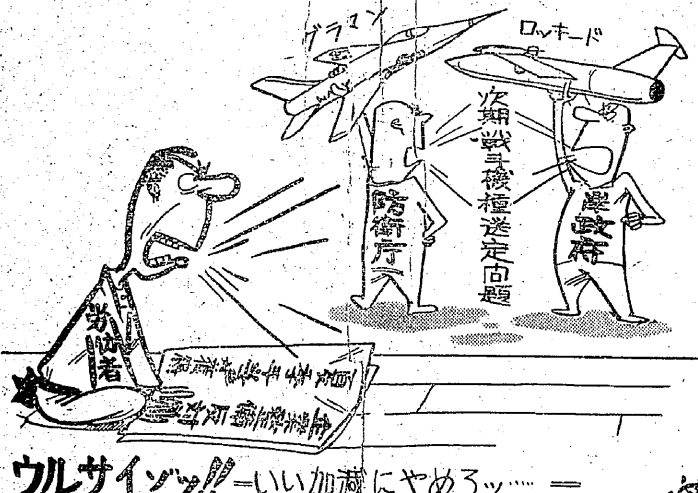 グラマン
ロッキード
次期戦斗機種送定问題
防衛庁
岸政府
労仂者
ウルサイゾッ!! =いい加減にやめろッ…… =